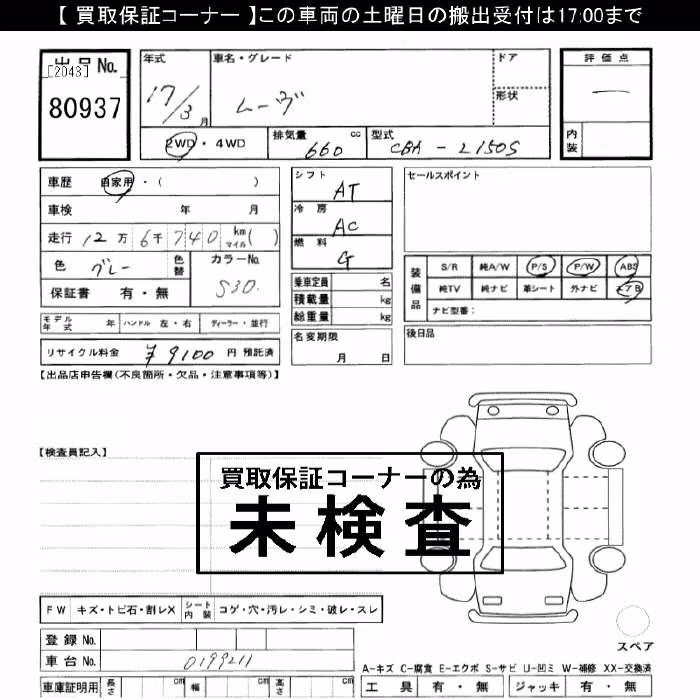 【 買取保証コーナー 】この車両の土曜日の搬出受付は17:00まで
出品 No.
[2043]
80937
年式
17/3月
車名・グレード
ムーヴ
ドア
形状
評価点
ー
内装
2WD・4WD
排気量 cc
660
型式
CBA - L150S
車歴 自家用・( )
車検 年 月
走行 12万 6千 740 km マイル ( )
色 グレー 色替
カラーNo.
S30.
保証書 有・無
シフト AT
冷房 AC
燃料 G
乗車定員 名
積載量 kg
総重量 kg
セールスポイント
装備品
S/R 純A/W P/S P/W ABS
純TV 純ナビ 革シート 外ナビ エアB
ナビ型番:
モデル年式 年 ハンドル 左・右 ディーラー・並行
名変期限
月 日
後日品
リサイクル料金 ¥9100 円 預託済
【出品店申告欄(不良箇所・欠品・注意事項等)】
【検査員記入】
買取保証コーナーの為
未検査
FW キズ・トビ石・割レX シート内装 コゲ・穴・汚レ・シミ・破レ・スレ
登録 No.
車台 No. 0199211
車庫証明用 長さ cm 幅 cm 高さ cm
スペア
A-キズ C-腐食 E-エクボ S-サビ U-凹ミ W-補修 XX-交換済
工具 有・無 ジャッキ 有・無